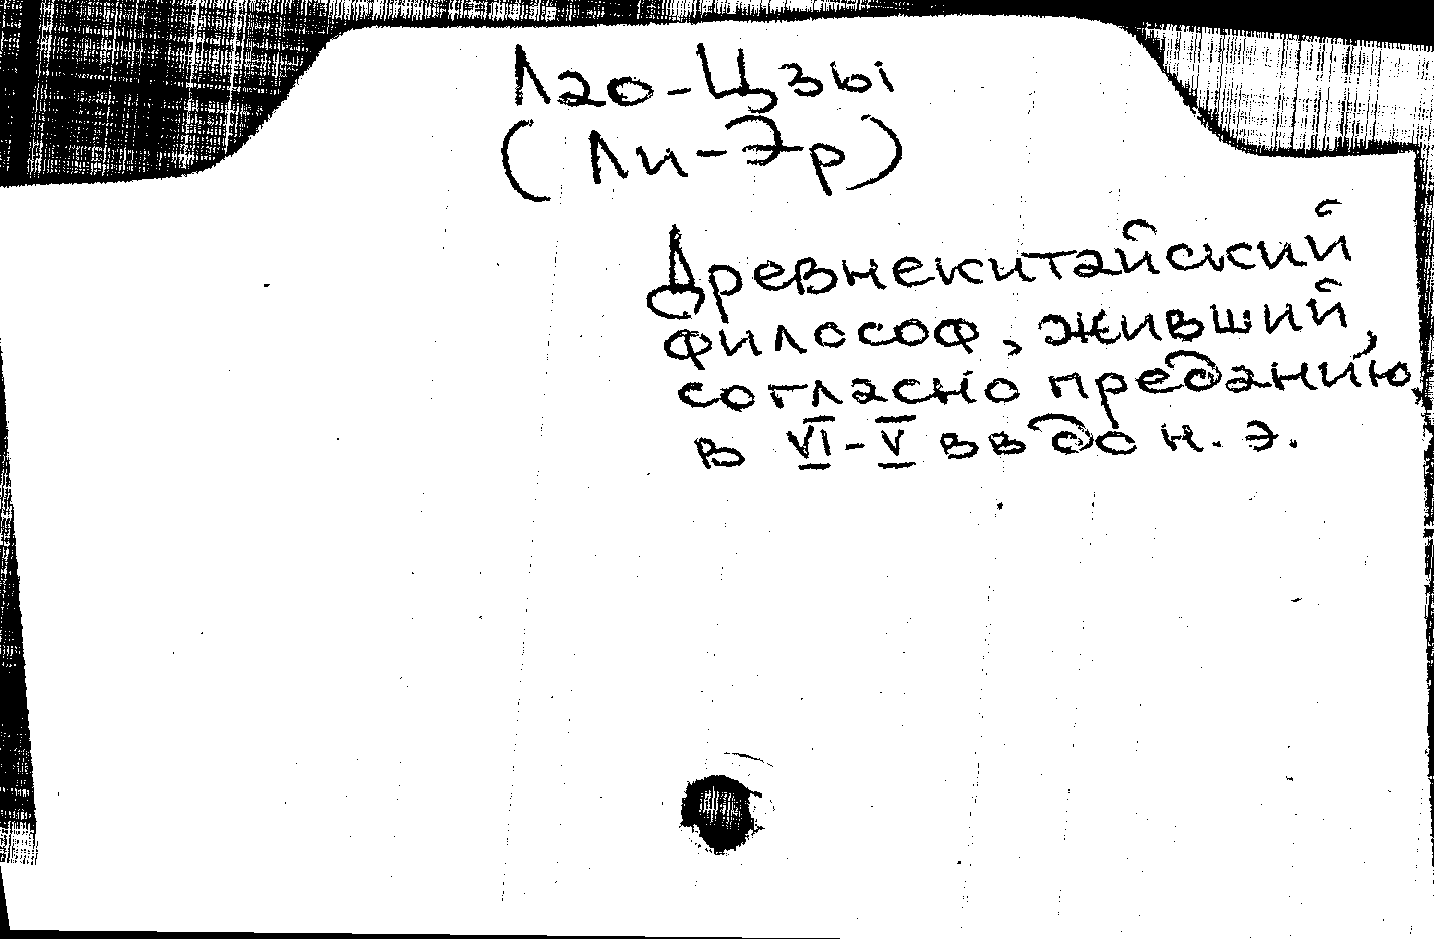 Лао-Цзы
(Ли-Эр)
Древнекитайский
философ, живший,
согласно преданию,
в VI-V вв до н. э.